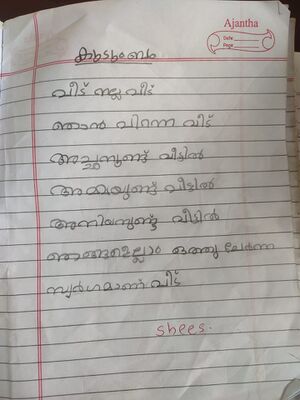 Ajantha
Date
Page
കുടുംബം
വീട് നല്ല വീട്
ഞാൻ പിറന്ന വീട്
അച്ഛനുണ്ട് വീട്ടിൽ
അമ്മയുണ്ട് വീട്ടിൽ
അനിയനുണ്ട് വീട്ടിൽ
ഞങ്ങളെല്ലാം ഒത്തു ചേർന്ന
സ്വർഗമാണ് വീട്
shees.